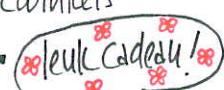 leuk cadeau!